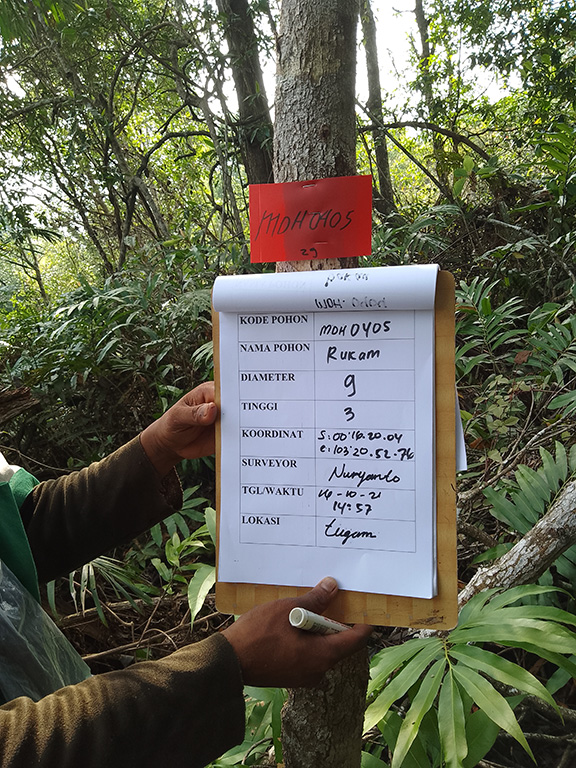 MDH 0405
29
KODE POHON MDH 0405
NAMA POHON Rukam
DIAMETER 9
TINGGI 3
KOORDINAT S:00°16.20.04
E:103°20.52.76
SURVEYOR Nuryanto
TGL/WAKTU 16-10-21
14:57
LOKASI tugam